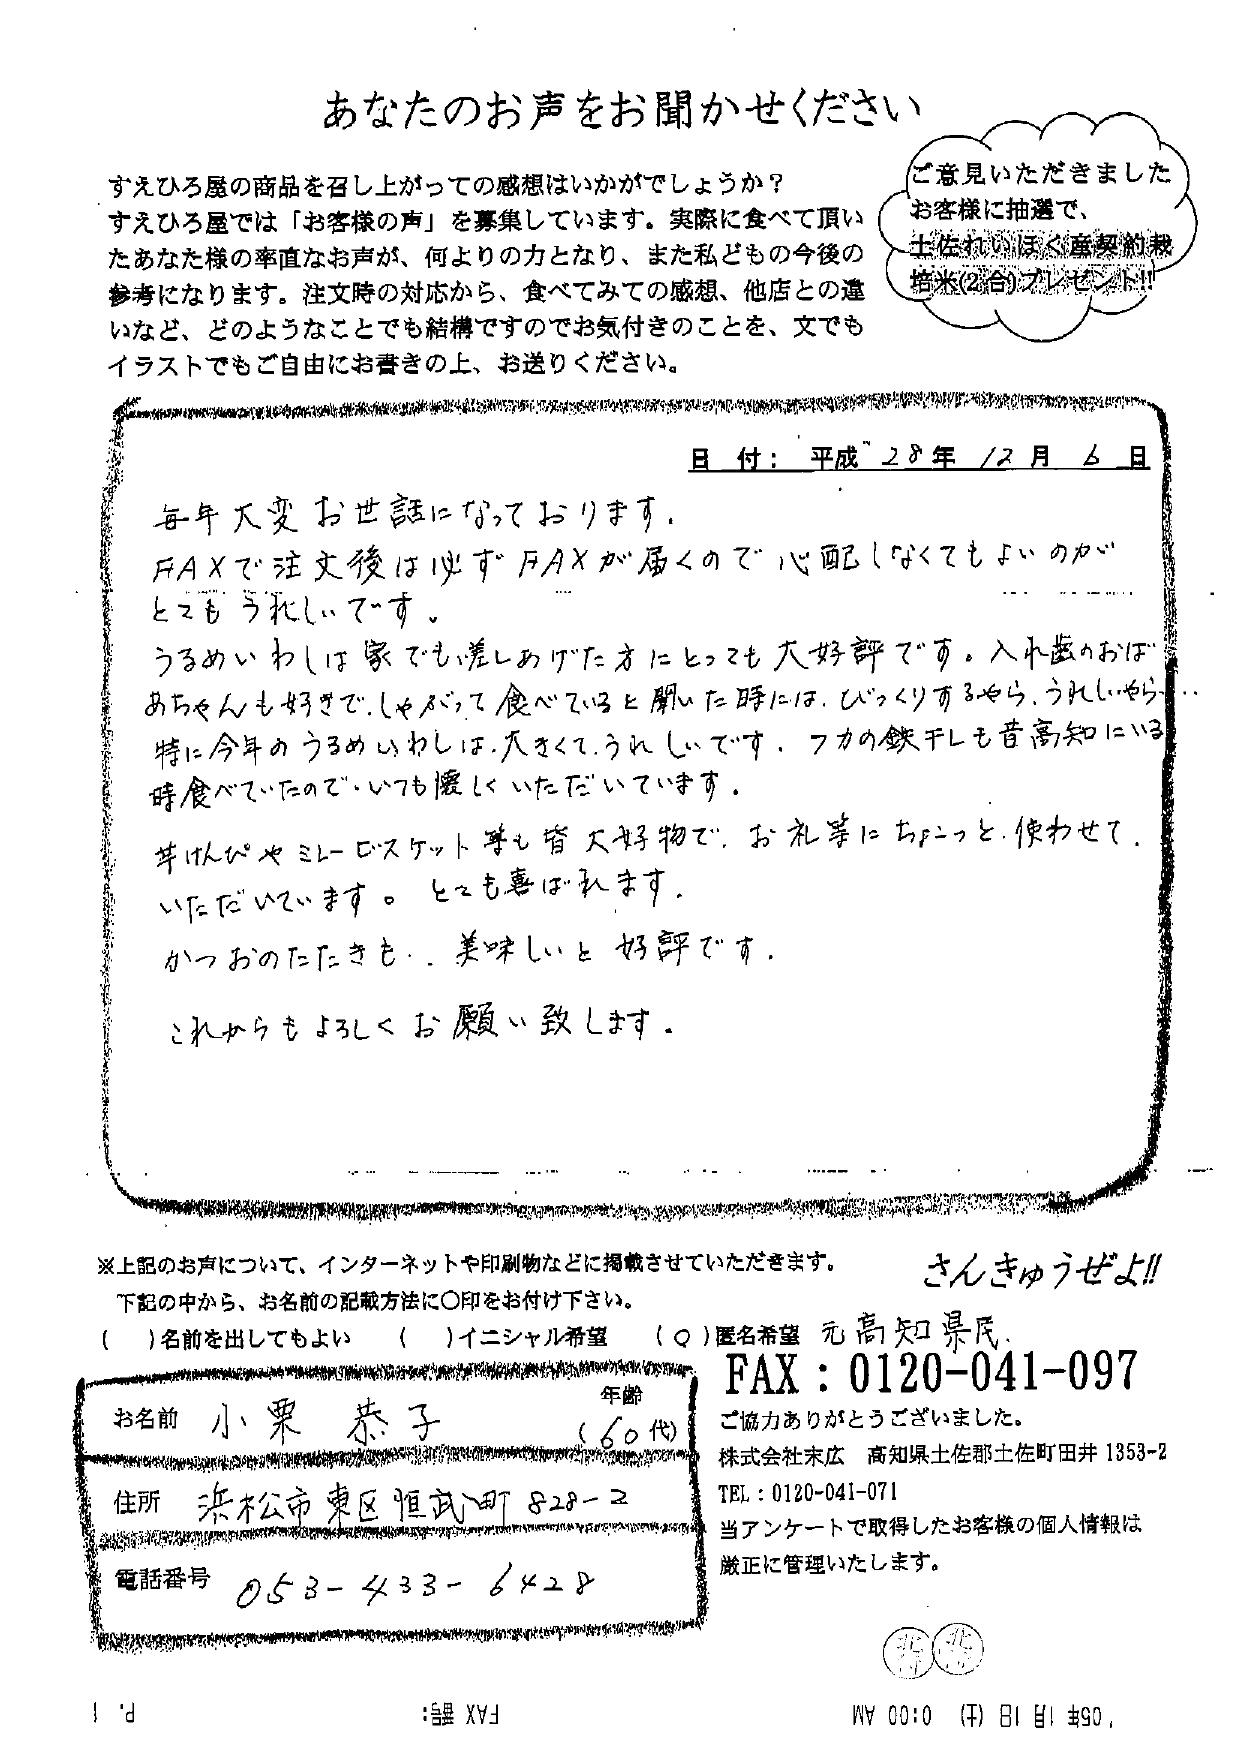 あなたのお声をお聞かせください
すえひろ屋の商品を召し上がっての感想はいかがでしょうか？
すえひろ屋では「お客様の声」を募集しています。実際に食べて頂い
たあなた様の率直なお声が、何よりの力となり、また私どもの今後の
参考になります。注文時の対応から、食べてみての感想、他店との違
いなど、どのようなことでも結構ですのでお気付きのことを、文でも
イラストでもご自由にお書きの上、お送りください。
ご意見いただきました
お客様に抽選で、
土佐れいほく産契約栽
培米(2合)プレゼント!!
日 付： 平成 28年 12月 6日
毎年大変お世話になっております.
FAXで注文後は必ずFAXが届くので心配しなくてもよいのが
とてもうれしいです。
うるめいわしは家でも、差しあげた方にとっても大好評です。入れ歯のおば
あちゃんも好きで、しゃぶって食べていると聞いた時には、びっくりするやら、うれしいやら…
特に今年のうるめいわしは、大きくて、うれしいです. フカの鉄干しも昔高知にいる
時食べていたので、いつも懐しくいただいています.
芋けんぴやミレービスケット等も皆大好物で、お礼等にちょこっと、使わせて.
いただいています。とても喜ばれます.
かつおのたたきも.. 美味しいと好評です.
これからもよろしくお願い致します.
※上記のお声について、インターネットや印刷物などに掲載させていただきます。
下記の中から、お名前の記載方法に〇印をお付け下さい。
(　)名前を出してもよい　(　)イニシャル希望　(〇)匿名希望 元高知県民.
さんきゅうぜよ!!
FAX：0120-041-097
お名前 小栗 恭子 年齢 (60代)
住所 浜松市東区恒武町828-2
電話番号 053-433-6428
ご協力ありがとうございました。
株式会社末広　高知県土佐郡土佐町田井1353-2
TEL：0120-041-071
当アンケートで取得したお客様の個人情報は
厳正に管理いたします。
'05年 1月 1日 (土) 0:00 AM
FAX 番号:
P. 1